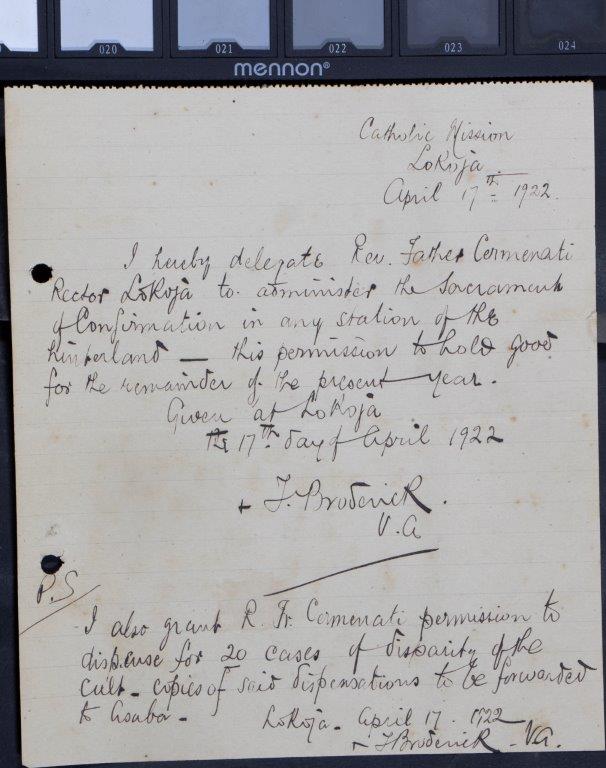 020 021 022 023 024
mennon®
Catholic Mission
Lokoja
April 17th 1922.
I hereby delegate Rev. Father Cermenati
Rector Lokoja to administer the Sacrament
of Confirmation in any station of the
hinterland — this permission to hold good
for the remainder of the present year.
Given at Lokoja
the 17th day of April 1922
+ T. Broderick.
V.A
P.S
I also grant R. Fr. Cermenati permission to
dispense for 20 cases of disparity of the
cult - copies of said dispensations to be forwarded
to Asaba -
Lokoja - April 17 - 1922
+ T Broderick - V.A.